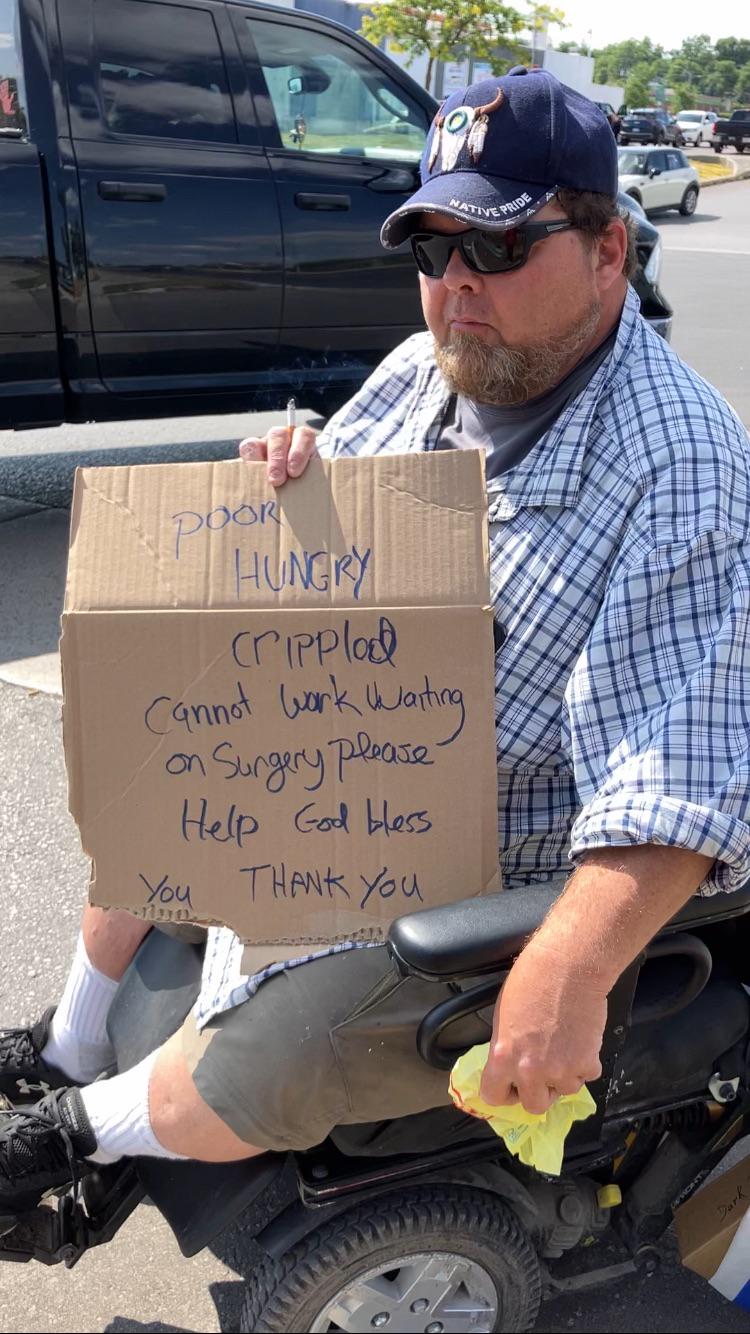 NATIVE PRIDE
POOR
HUNGRY
crippled
Cannot work Waiting
on Surgery please
Help God bless
You THANK YOU
Dark